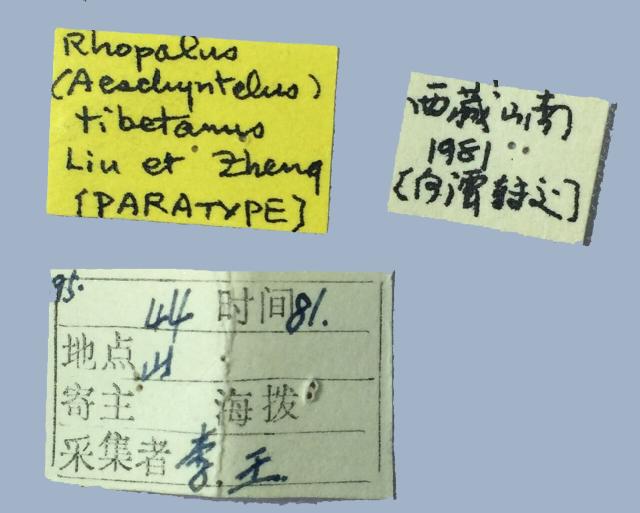 Rhopalus
(Aeschyntelus)
tibetanus
Liu et Zheng
[PARATYPE]
西藏山南
1981
95.
44 时间81.
地点山
寄主 海拨
采集者李.王.